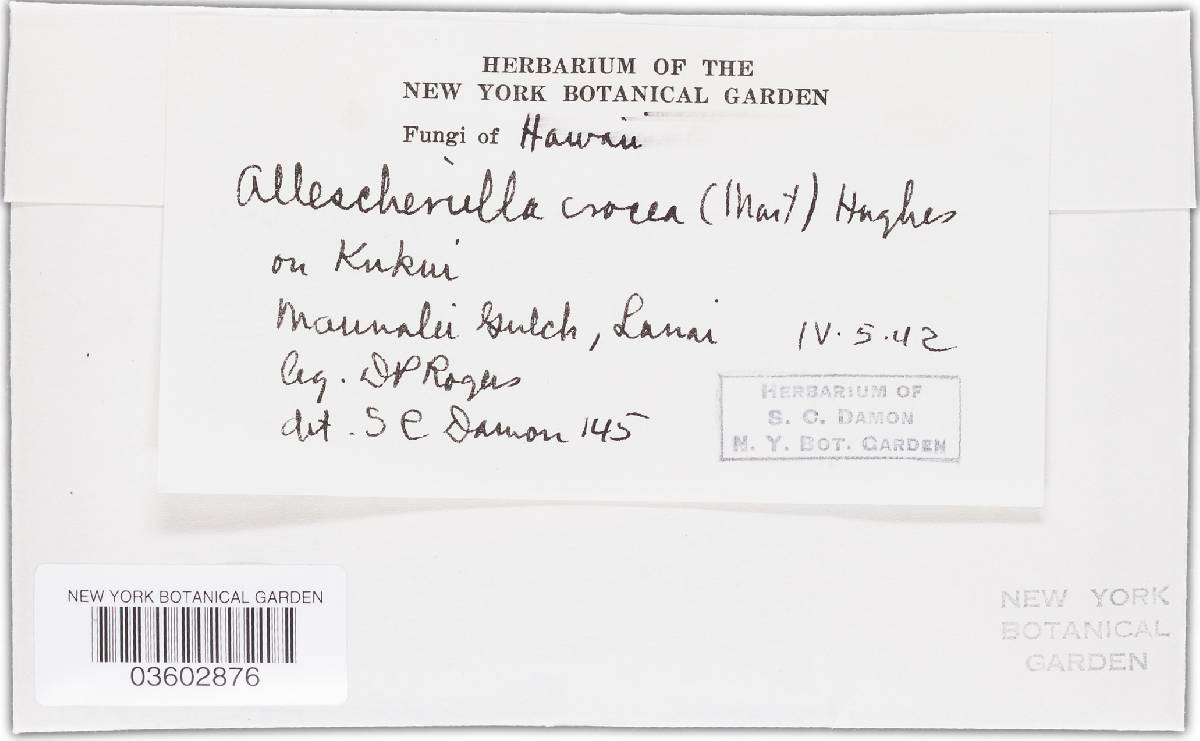 HERBARIUM OF THE
NEW YORK BOTANICAL GARDEN
Fungi of Hawaii
Allescheriella crocea (Mont) Hughes
on Kukui
Maunalei Gulch, Lanai IV. 5. 42
leg. D P Rogers
det. S C Damon 145
HERBARIUM OF
S. C. DAMON
N. Y. BOT. GARDEN
NEW YORK BOTANICAL GARDEN
03602876
NEW YORK
BOTANICAL
GARDEN